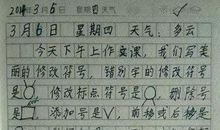 2014年3月6日 星期四 天气
3月6日 星期四 天气：多云
今天下午上作文课，我们写美
丽的修改符号，错别字的修改符号
是○，修改标点符号是 ，删除号
是 ，添加号是∨，前移或后移是